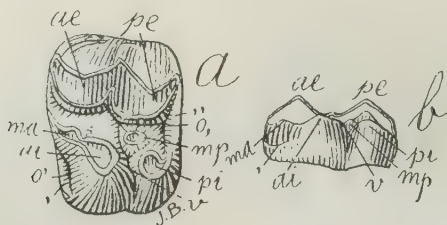 ae pe
a
ma
ai
o'
'
"
o,
mp
pi
J.B. u
b
ae pe
ma
'
ai
v
pi
mp